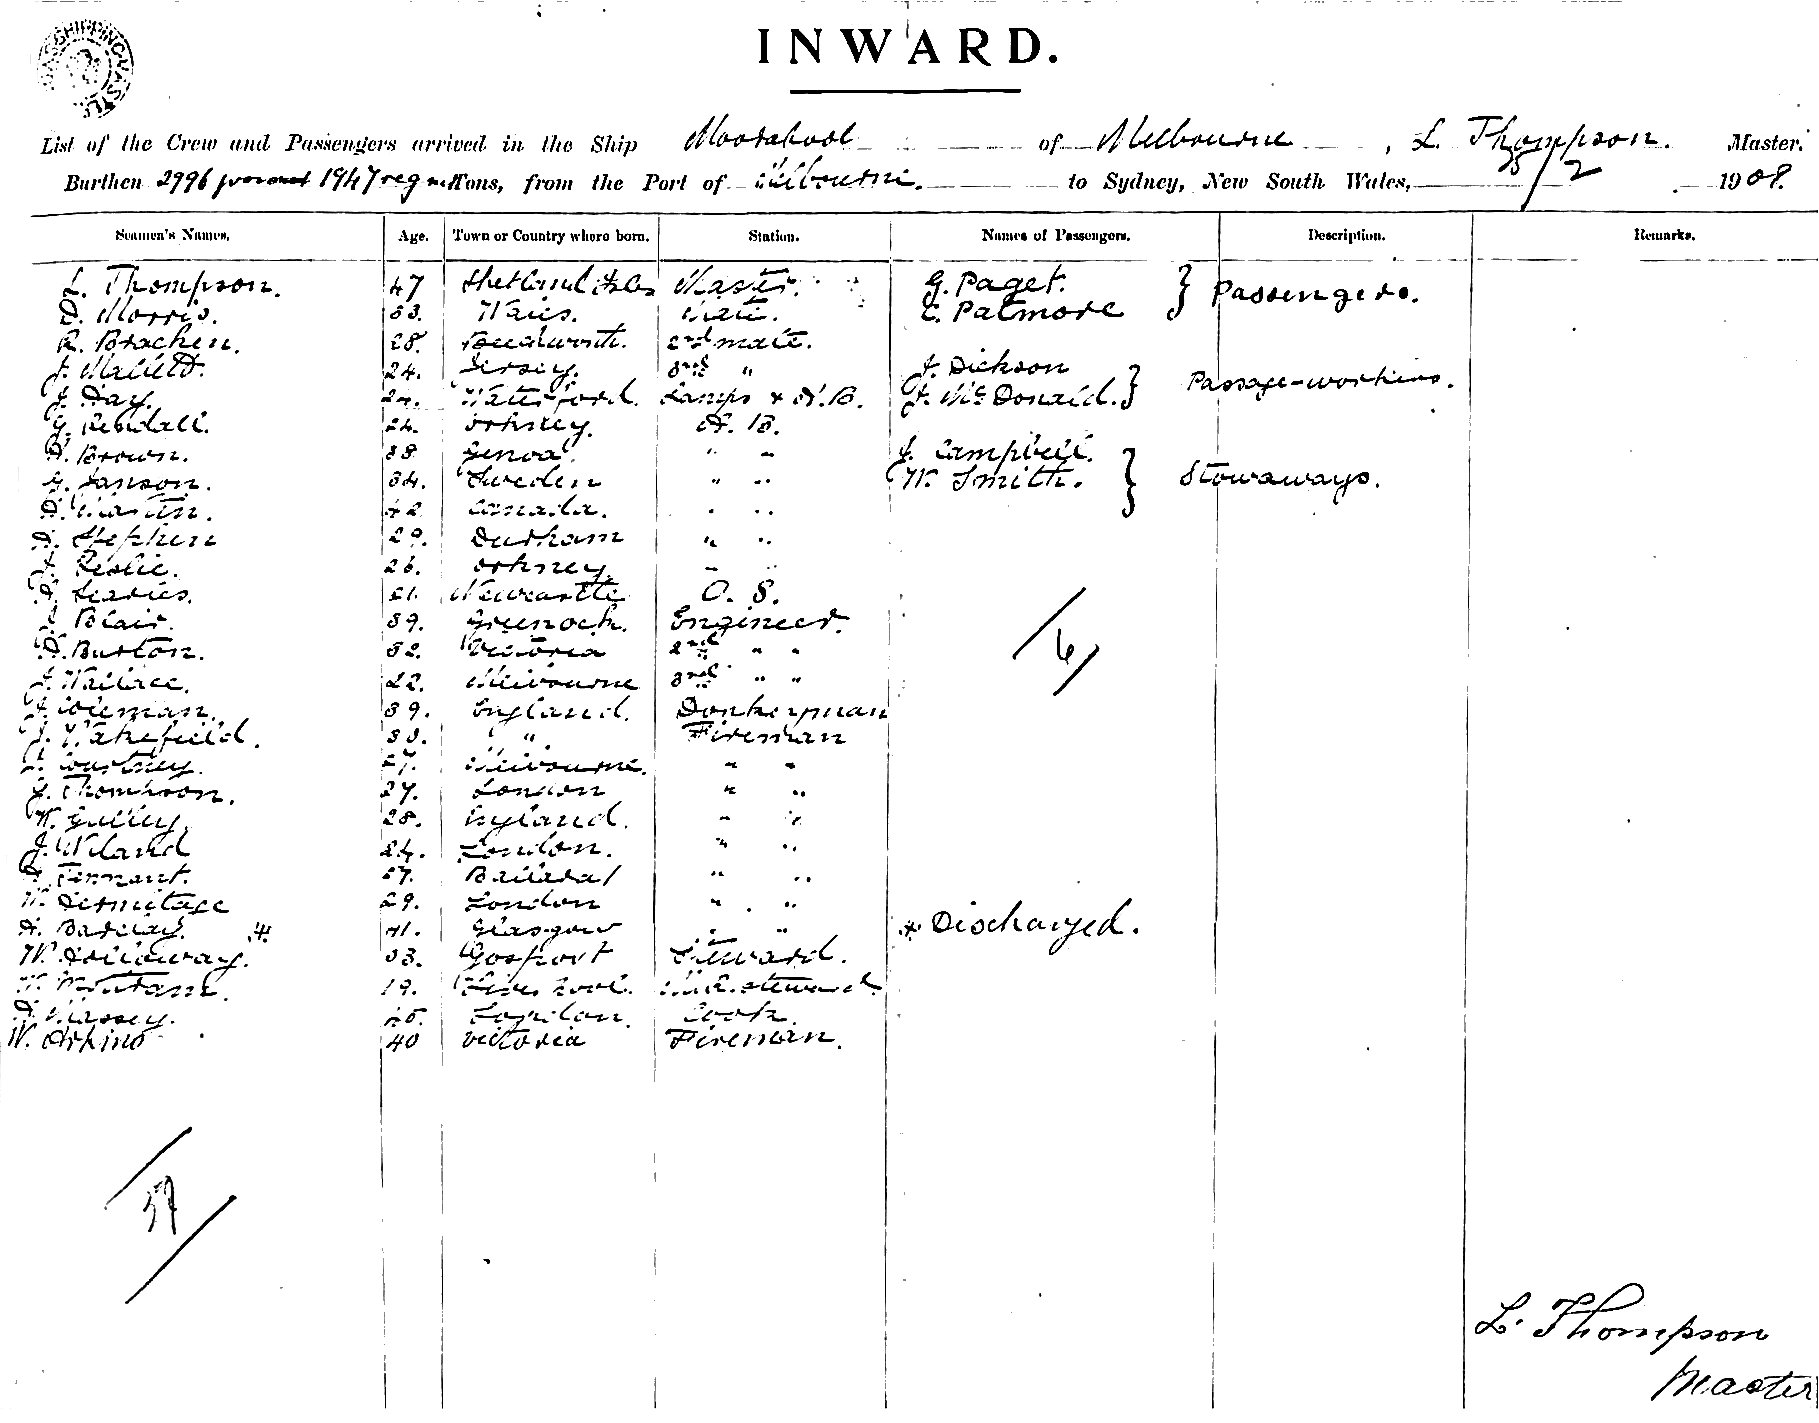 INWARD.
List of the Crew and Passengers arrived in the Ship Moorabool of Melbourne, L. Thompson. Master.
Burthen 2996 1947 Tons, from the Port of Melbourne. to Sydney, New South Wales, 1908.
Seamen's Names. Age. Town or Country where born. Station. Names of Passengers. Description. Remarks.
L. Thompson. 47 Shetland Isles Master. G. Paget. } Passengers.
D. Morris. 33. Wales. Mate. C. Patmore
R. Brachen. 28. 2nd mate.
J. 24. Jersey. 3rd " J. Dickson } Passage-workers.
J. Day. 24. Waterford. Lamps & A.B. J. McDonald.
G. Rendall. 24. Orkney. A. B.
Brown. 38 Genoa. " " J. Campbell. } Stowaways.
Janson. 34. Sweden " " W. Smith.
Martin. 42 Canada. " "
Stephen 29. Durham " "
Leslie. 26. Orkney " "
Searles. 21. Newcastle O. S.
Blair. 39. Greenock. Engineer.
Burton. 32. Victoria 2nd " "
J. Wallace. 22. Melbourne 3rd " "
Coleman. 39. England. Donkeyman
Wakefield. 33. " Fireman
Courtney. 27. Melbourne. " "
Thompson. 27. London " "
W. Gulley. 28. England. " "
J. Wiland 24. London. " "
Tennant. 27. Ballarat " "
W. Dermitage 29. London " "
A. Barclay. * 41. Glasgow " " * Discharged.
W. Holloway. 33. Gosport Steward.
19. Liverpool. M.R. Steward.
Massey. London. Cook.
W. Arkins 40 Victoria Fireman.
6
L. Thompson
Master